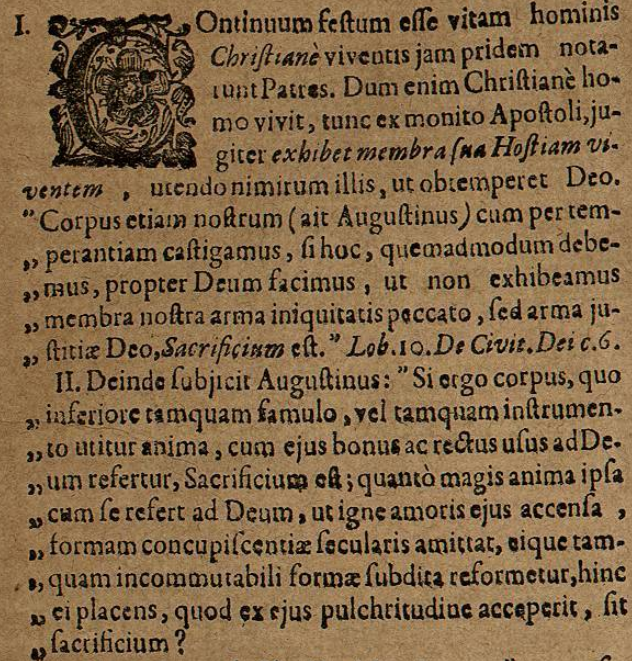 I. COntinuum feſtum eſſe vitam hominis
Chriſtianè viventis jam pridem nota-
runt Patres. Dum enim Chriſtianè ho-
mo vivit, tunc ex monito Apoſtoli, ju-
giter exhibet membra ſua Hoſtiam vi-
ventem , utendo nimirum illis, ut obtemperet Deo.
" Corpus etiam noſtrum (ait Auguſtinus) cum per tem-
„ perantiam caſtigamus, ſi hoc, quemadmodum debe-
„ mus, propter Deum facimus , ut non exhibeamus
„ membra noſtra arma iniquitatis peccato, ſed arma ju-
„ ſtitiæ Deo, Sacrificium eſt." Lob. 10. De Civit. Dei c. 6.
II. Deinde ſubjicit Auguſtinus: " Si ergo corpus, quo
„ inferiore tamquam famulo, vel tamquam inſtrumen-
„ to utitur anima, cum ejus bonus ac rectus uſus ad De-
„ um refertur, Sacrificium eſt; quantò magis anima ipſa
„ cum ſe refert ad Deum, ut igne amoris ejus accenſa ,
„ formam concupiſcentiæ ſecularis amittat, eique tam-
„ quam incommutabili formæ ſubdita reformetur, hinc
„ ei placens, quod ex ejus pulchritudine acceperit, ſit
„ ſacrificium?